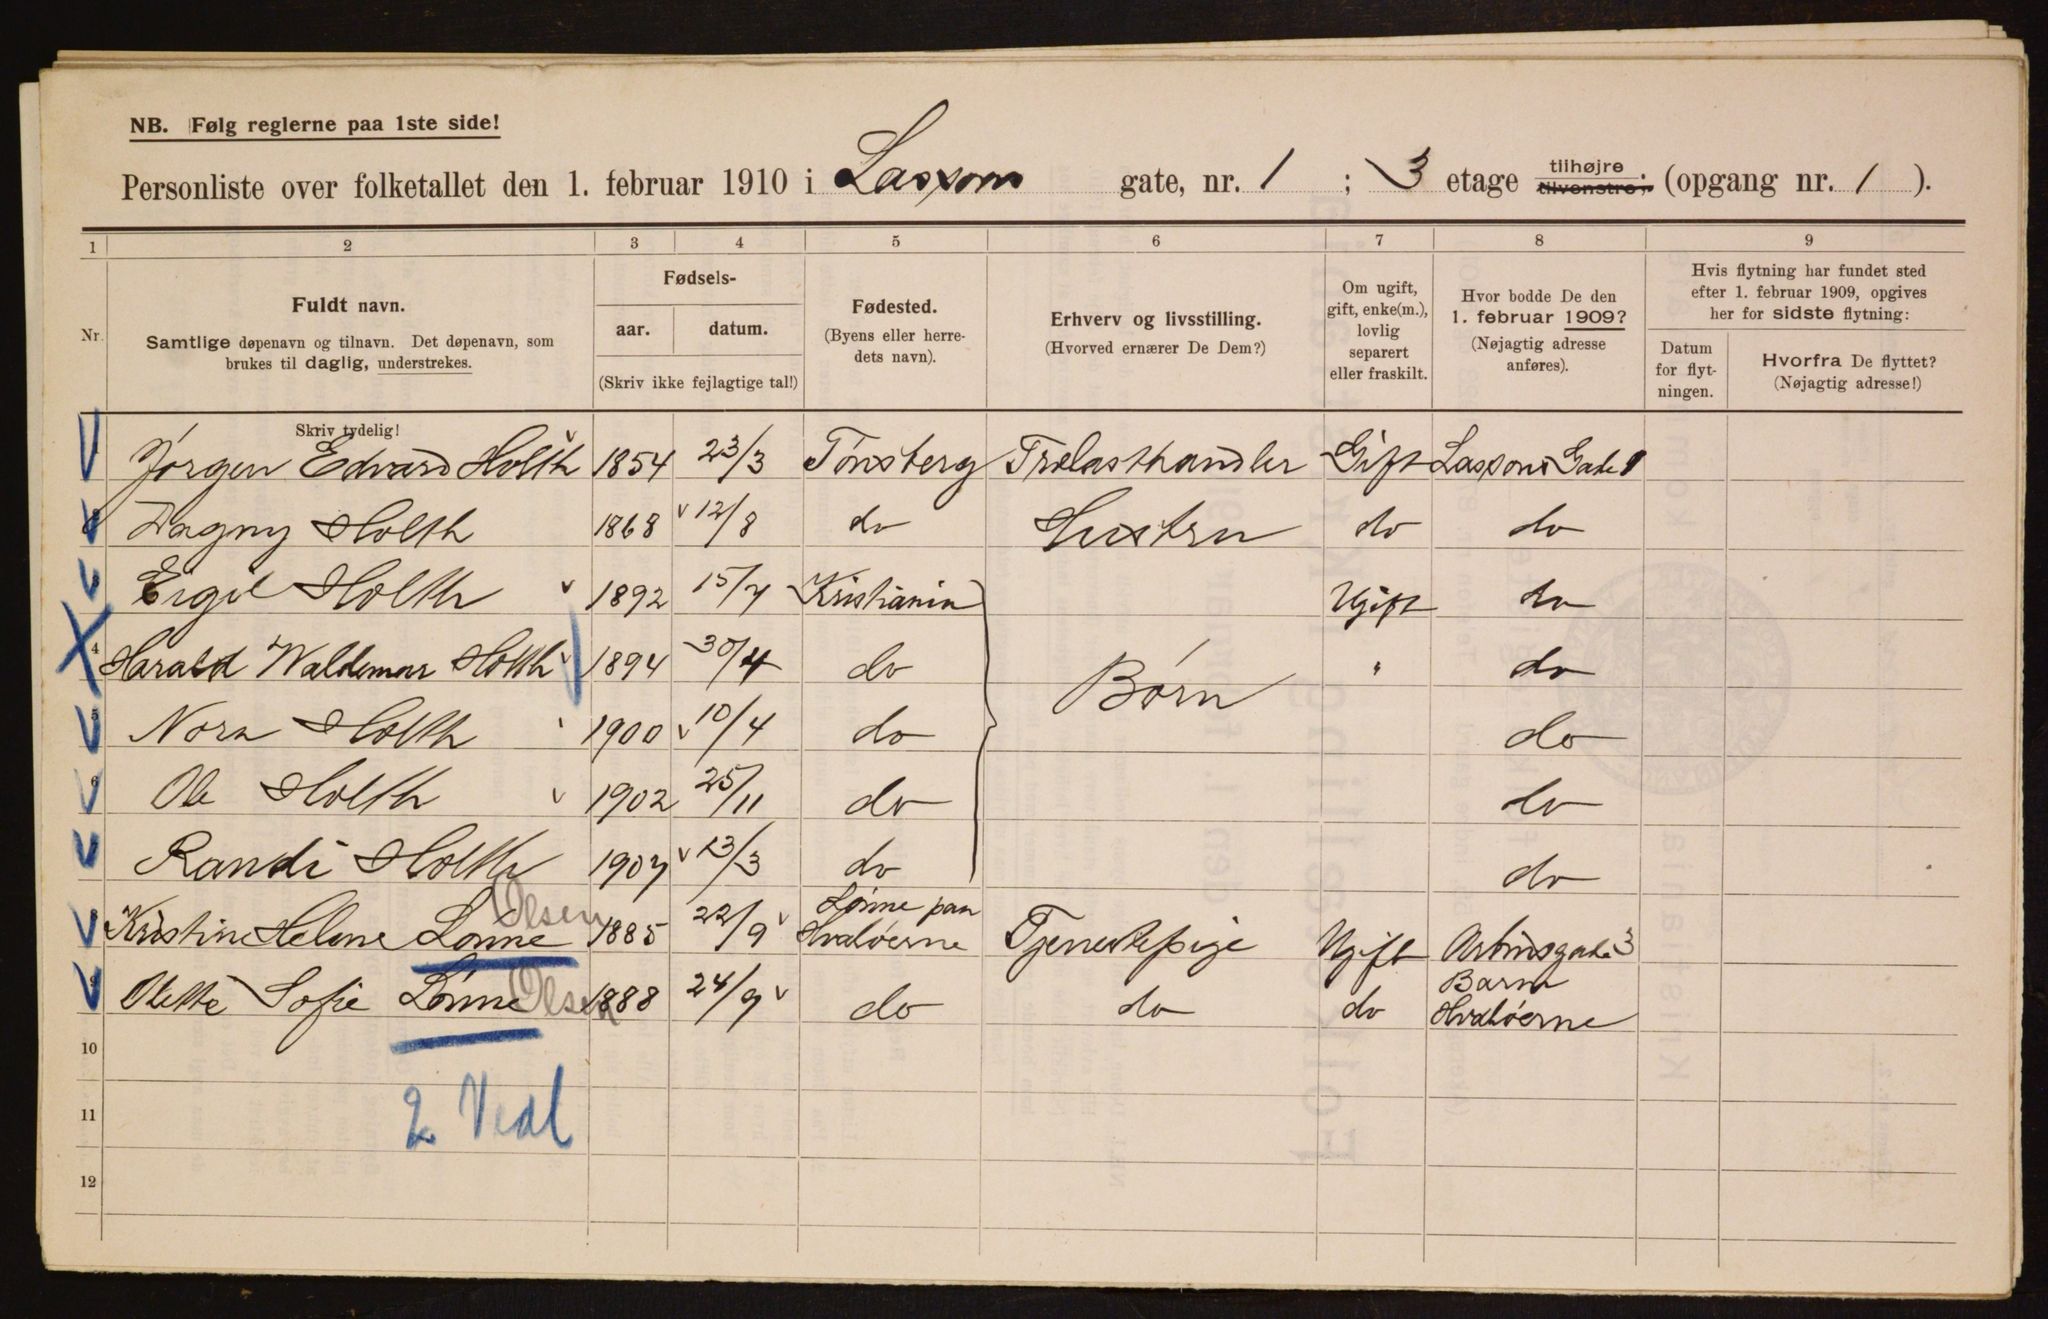 NB. Følg reglerne paa 1ste side!
Personliste over folketallet den 1. februar 1910 i Lassons gate, nr. 1 ; 3 etage tilhøjre tilvenstre; (opgang nr. 1 ).
1 2 3 4 5 6 7 8 9
Nr.
Fuldt navn.
Samtlige døpenavn og tilnavn. Det døpenavn, som
brukes til daglig, understrekes.
Fødsels-
aar. datum.
(Skriv ikke fejlagtige tal!)
Fødested.
(Byens eller herre-
dets navn).
Erhverv og livsstilling.
(Hvorved ernærer De Dem?)
Om ugift,
gift, enke(m.),
lovlig
separert
eller fraskilt.
Hvor bodde De den
1. februar 1909?
(Nøjagtig adresse
anføres).
Hvis flytning har fundet sted
efter 1. februar 1909, opgives
her for sidste flytning:
Datum
for flyt-
ningen.
Hvorfra De flyttet?
(Nøjagtig adresse!)
Skriv tydelig!
Jørgen Edvard Holth 1854 23/3 Tønsberg Trælasthandler Gift Lassons Gade 1
Dagny Holth 1868 12/8 do Hustru do do
Eigil Holth 1892 15/7 Kristiania Ugift do
4 Harald Waldemar Holth 1894 30/4 do Børn " do
5 Nora Holth 1900 10/4 do do
6 Ole Holth 1902 25/11 do do
Randi Holth 1907 13/3 do do
Kristine Helene Lønne Olsen 1885 22/9 Lønne paa Hvaløerne Tjenestepige Ugift 3
9 Olette Sofie Lønne Olsen 1888 24/9 do do do Hvaløerne
10
11
2
12